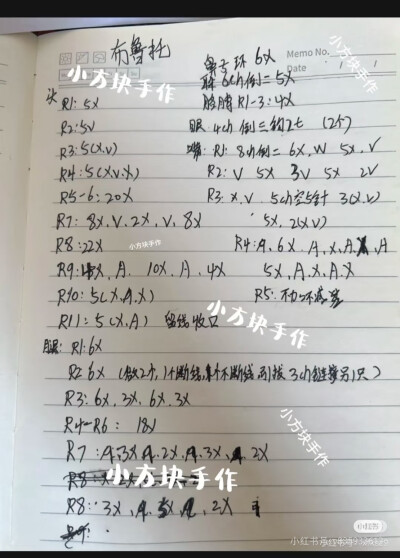 布鲁托
Memo No.
Date / /
鼻子环 6X
6ch倒二 5X
胳膊 R1-3:4X
眼 4ch 倒三钩 (2个)
嘴:R1: 8ch倒二 6X, W 5X, V
R2: V 5X 3V 5X 2V
R3: X, V, 5ch空5针 3(X,V)
5X, 2(X,V)
R4: A, 6X, A, X, A, A
5X, A, X, A, X
R5: 不加不减
头 R1: 5X
R2: 5V
R3: 5(X,V)
R4: 5(X,V,X)
R5-6: 20X
R7: 8X, V, 2X, V, 8X
R8: 22X
R9: 4X, A, 10X, A, 4X
R10: 5(X,A,X)
R11: 5(X,A) 留线收口
腿: R1: 6X
R2: 6X (做2个, 1个断线, 不断线引拔3ch链接另1只)
R3: 6X, 3X, 6X, 3X
R4-R6: 18X
R7: A, 3X, A, 2X, A, 3X, A, 2X
R8: 3X, A, 5X, A, 2X
小方块手作
小方块手作
小方块手作
小方块手作
小方块手作
小方块手作
小红书